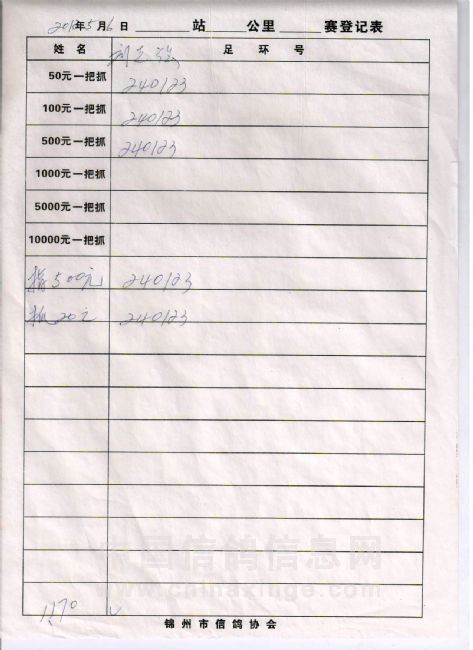 2010年5月6日 站 公里 赛登记表
姓名 足环号
50元一把抓 240123
100元一把抓 240123
500元一把抓 240123
1000元一把抓
5000元一把抓
10000元一把抓
指500元 240123
20元 240123
中国信鸽信息网
www.chinaxinge.com
1170
锦州市信鸽协会